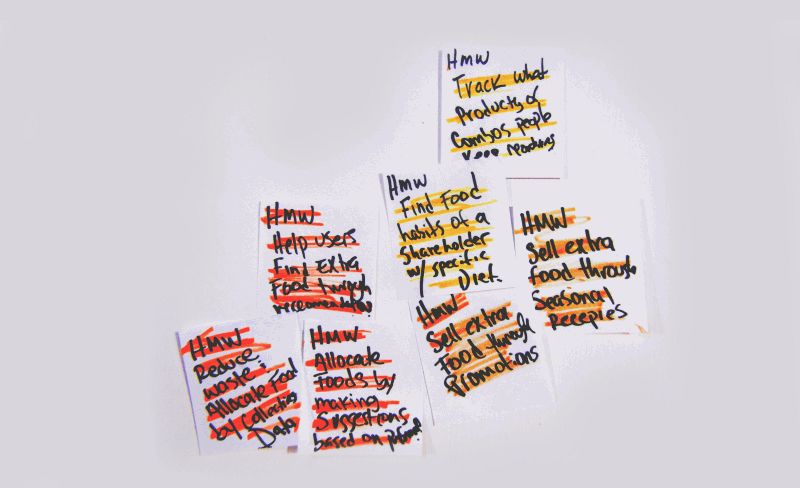 HMW
Track what
Products or
Combos people
Keep
HMW
Find Food
habits of a
Shareholder
w/ specific
Diet.
HMW
Help users
Find Extra
Food through
recomendations
HMW
Sell extra
food through
Seasonal
Recepies
HMW
Sell extra
Food through
Promotions
HMW
Reduce
waste:
Allocate Food
by Collecting
Data
HMW
Allocate
Foods by
making
Suggestions
based on